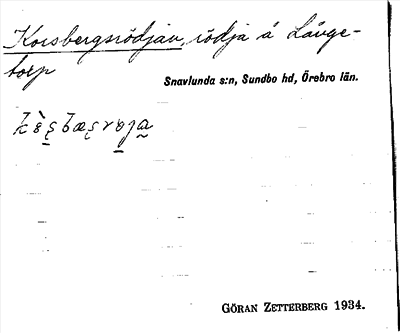 Korsbergsrödjan, rödja å Låvge-
torp
Snavlunda s:n, Sundbo hd, Örebro län.
GÖRAN ZETTERBERG 1934.